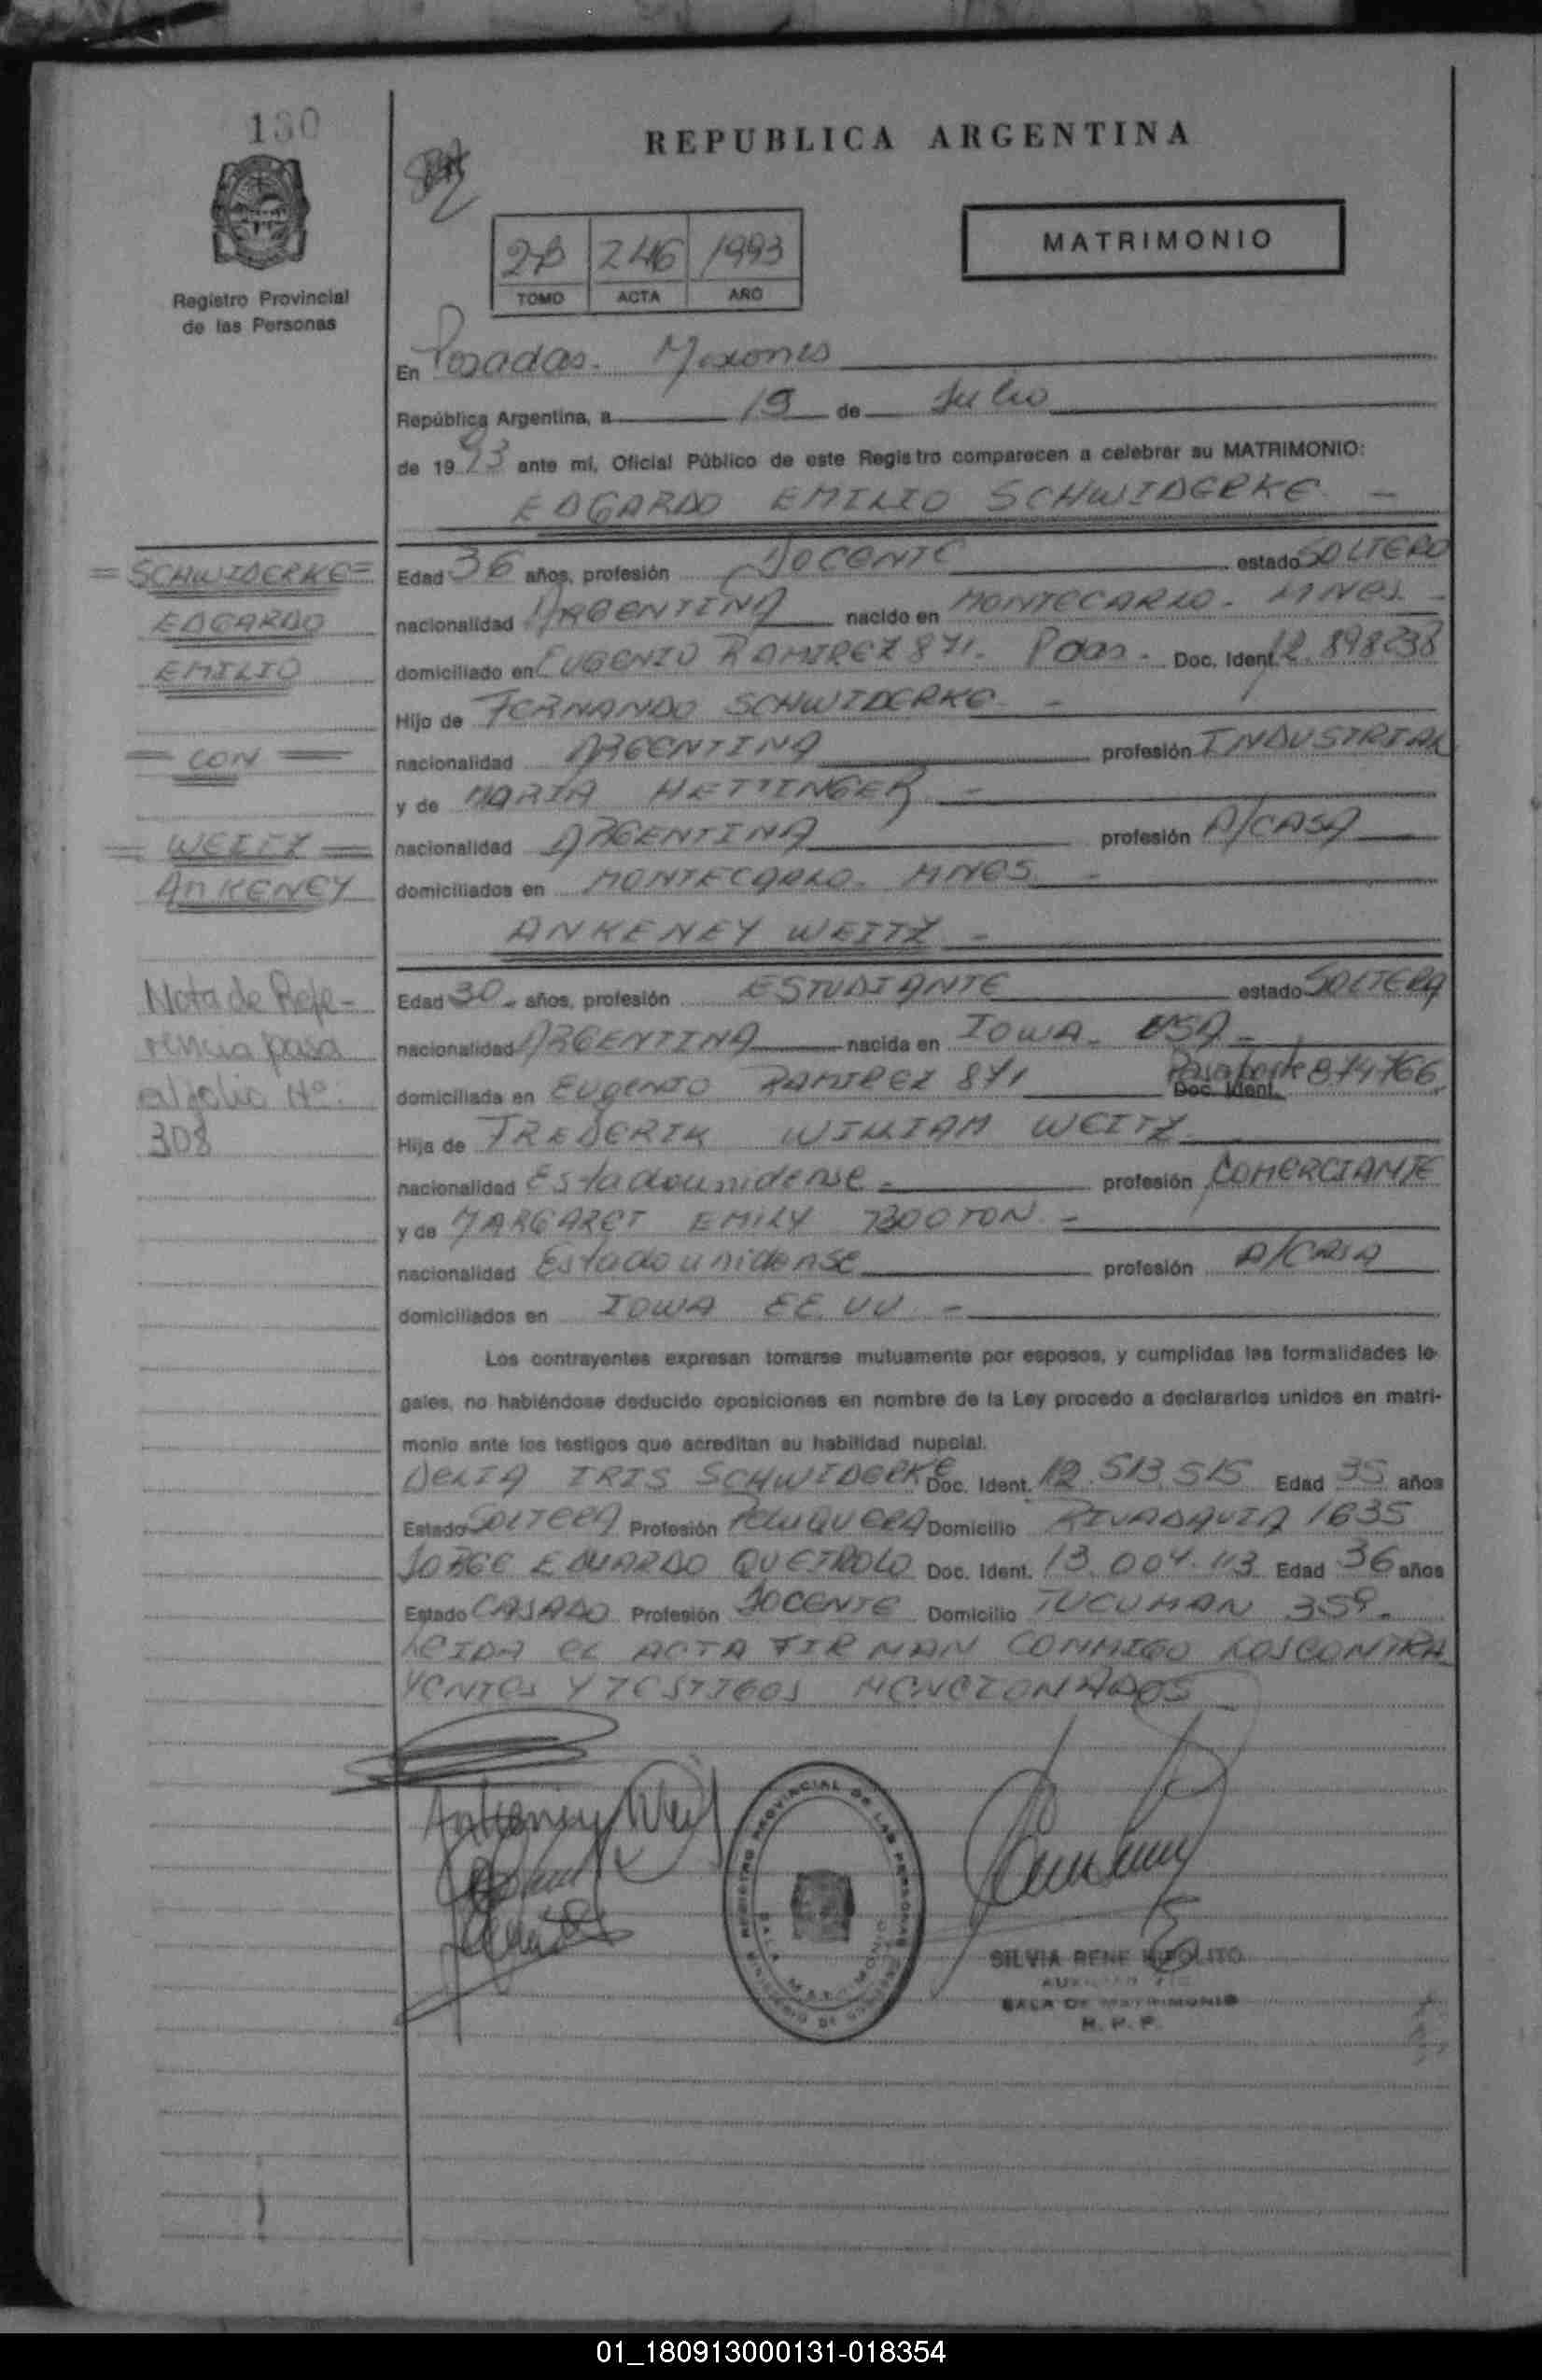 130
REPUBLICA ARGENTINA
MATRIMONIO
246 1993
TOMO ACTA AÑO
Registro Provincial
de las Personas
En Posadas. Misiones
República Argentina, a 19 de Julio
de 1993 ante mí, Oficial Público de este Registro comparecen a celebrar su MATRIMONIO:
EDGARDO EMILIO SCHWIDERKE -
= SCHWIDERKE =
EDGARDO
EMILIO
= CON =
= WEITZ =
ANKENEY
Nota de Refe-
rencia pasa
al folio Nº
308
Edad 36 años, profesión DOCENTE estado SOLTERO
nacionalidad ARGENTINA nacido en MONTECARLO - MNES -
domiciliado en EUGENIO RAMIREZ 871. Pdas. Doc. Ident. 12.898238
Hijo de FERNANDO SCHWIDERKE -
nacionalidad ARGENTINA profesión INDUSTRIAL
y de MARIA HETTINGER -
nacionalidad ARGENTINA profesión A/CASA
domiciliados en MONTECARLO. MNES -
ANKENEY WEITZ -
Edad 30 - años, profesión ESTUDIANTE estado SOLTERA
nacionalidad ARGENTINA nacida en IOWA - USA -
domiciliada en EUGENIO RAMIREZ 871 Pasaporte Doc. Ident. 874766
Hija de FREDERIK WILLIAM WEITZ
nacionalidad Estadounidense - profesión COMERCIANTE
y de MARGARET EMILY BOOTON -
nacionalidad Estadounidense profesión A/CASA
domiciliados en IOWA EE UU. -
Los contrayentes expresan tomarse mutuamente por esposos, y cumplidas las formalidades le-
gales, no habiéndose deducido oposiciones en nombre de la Ley procedo a declararlos unidos en matri-
monio ante los testigos que acreditan su habilidad nupcial.
DELIA IRIS SCHWIDERKE Doc. Ident. 12.513.515 Edad 35 años
Estado SOLTERA Profesión PELUQUERA Domicilio RIVADAVIA 1635
JORGE EDUARDO QUEIROLO Doc. Ident. 13.004.113 Edad 36 años
Estado CASADO Profesión DOCENTE Domicilio TUCUMAN 359.
LEIDA EL ACTA FIRMAN CONMIGO LOS CONTRA
YENTES Y TESTIGOS MENCIONADOS
Ankeney Weitz
REGISTRO PROVINCIAL DE LAS PERSONAS
SALA MATRIMONIO
MINISTERIO DE GOBIERNO
SILVIA RENE HIPOLITO
SALA DE MATRIMONIO
R. P. P.
01_180913000131-018354